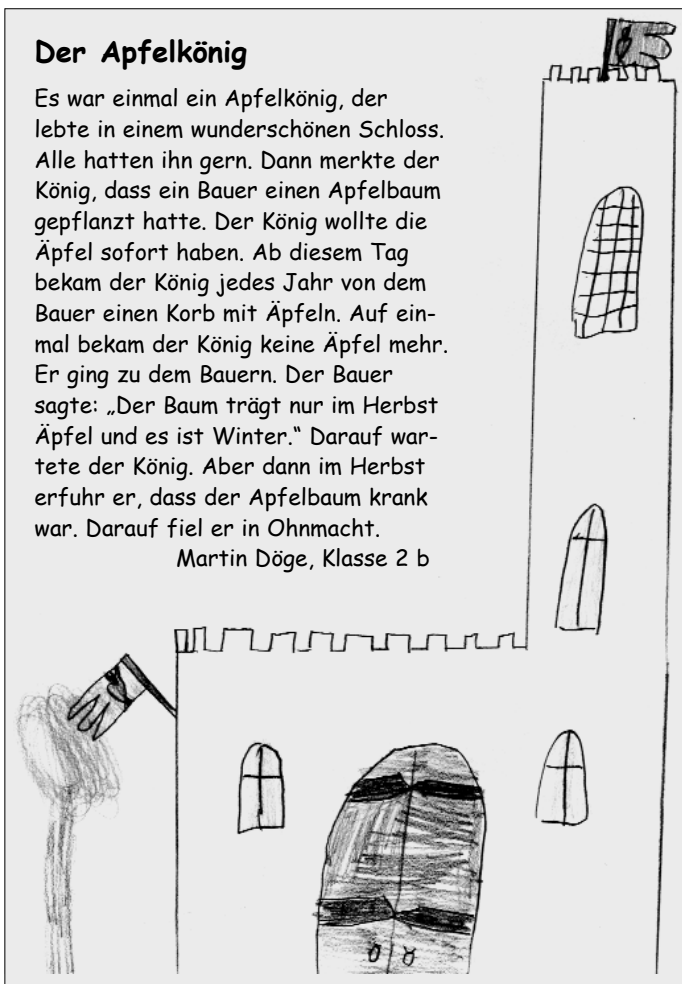 Der Apfelkönig
Es war einmal ein Apfelkönig, der
lebte in einem wunderschönen Schloss.
Alle hatten ihn gern. Dann merkte der
König, dass ein Bauer einen Apfelbaum
gepflanzt hatte. Der König wollte die
Äpfel sofort haben. Ab diesem Tag
bekam der König jedes Jahr von dem
Bauer einen Korb mit Äpfeln. Auf ein-
mal bekam der König keine Äpfel mehr.
Er ging zu dem Bauern. Der Bauer
sagte: „Der Baum trägt nur im Herbst
Äpfel und es ist Winter.“ Darauf war-
tete der König. Aber dann im Herbst
erfuhr er, dass der Apfelbaum krank
war. Darauf fiel er in Ohnmacht.
Martin Döge, Klasse 2 b